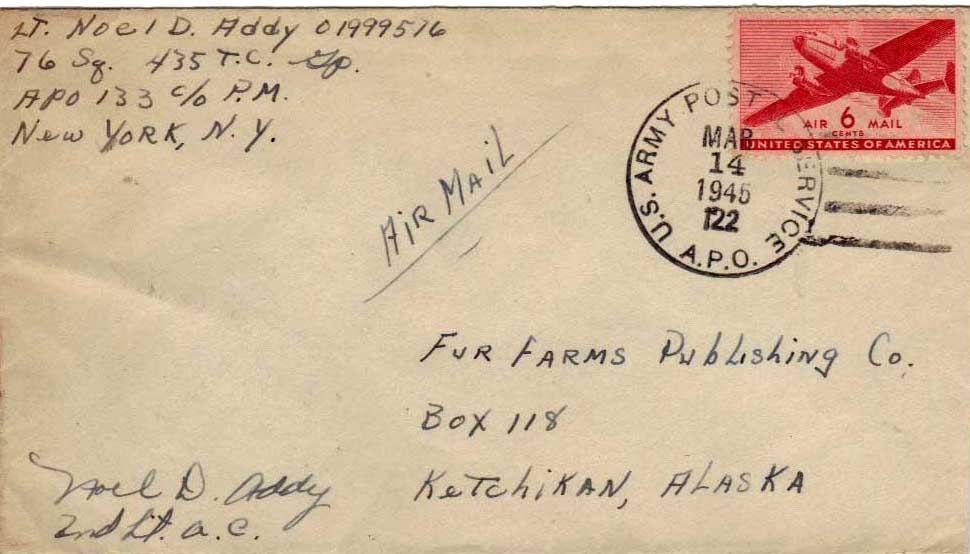 Lt. Noel D. Addy 01999516
76 Sq. 435 T.C. Gp.
APO 133 c/o P.M.
New York, N.Y.
Air Mail
U.S. ARMY POSTAL SERVICE
A.P.O.
MAR
14
1945
122
AIR 6 MAIL
CENTS
UNITED STATES OF AMERICA
Fur Farms Publishing Co.
Box 118
Ketchikan, Alaska
Noel D. Addy
2nd Lt. A.C.